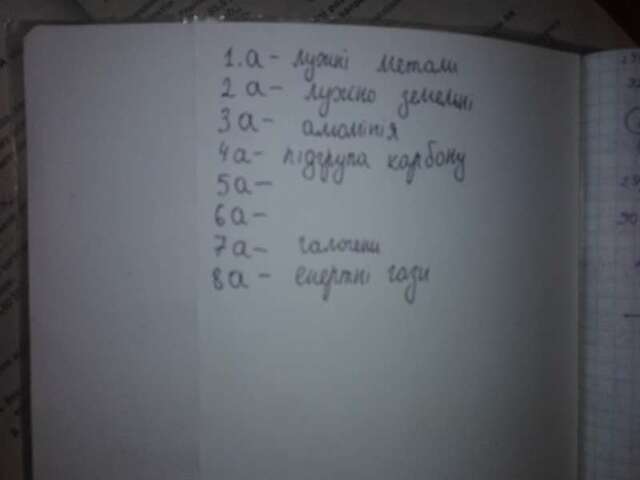 1.а - лужні метали
2 а - лужно земельні
3а - алюмінія
4а - підгрупа карбону
5а -
6а -
7а - галогени
8а - енертні гази